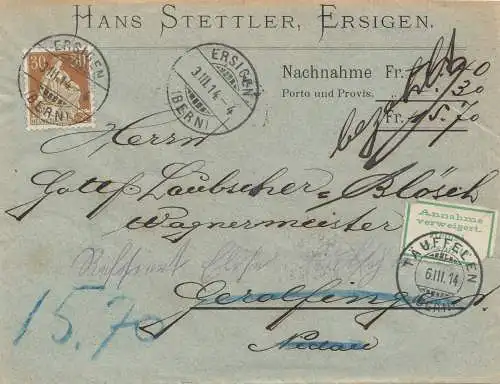 HANS STETTLER, ERSIGEN.
30 30
ERSIGEN
III.14
(BERN)
ERSIGEN
3.III.14-4
(BERN)
Nachnahme Fr.
Porto und Provis. 30
Fr. 15.70
bezahlt
Herrn
Gottf. Laubscher-Blösch
Wagnermeister
Annahme
verweigert.
TÄUFFELEN
6.III.14
(BERN)
Refusiert
Gerolfingen
Nidau
15.70